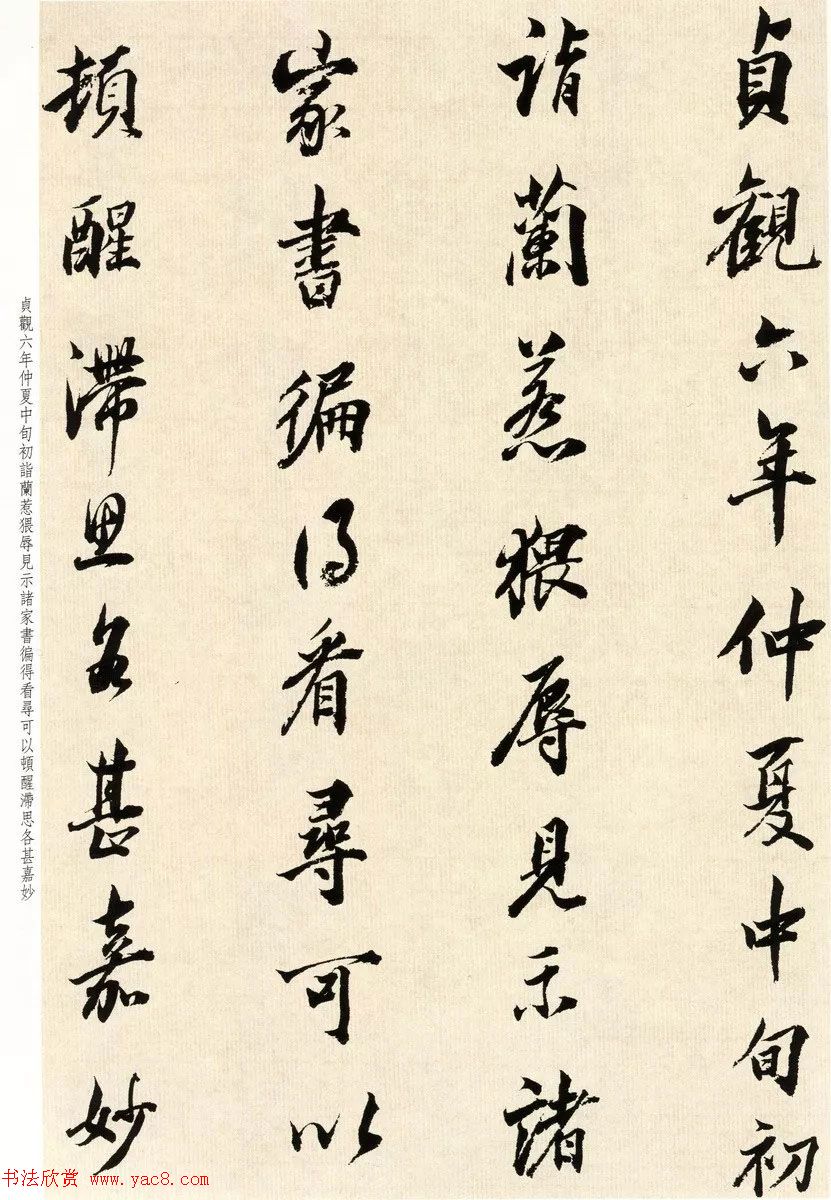 貞觀六年仲夏中旬初
詣蘭惹猥辱見示諸
家書徧得看尋可以
頓醒滯思各甚嘉妙
貞觀六年仲夏中旬初詣蘭惹猥辱見示諸家書徧得看尋可以頓醒滯思各甚嘉妙
书法欣赏 www.yac8.com